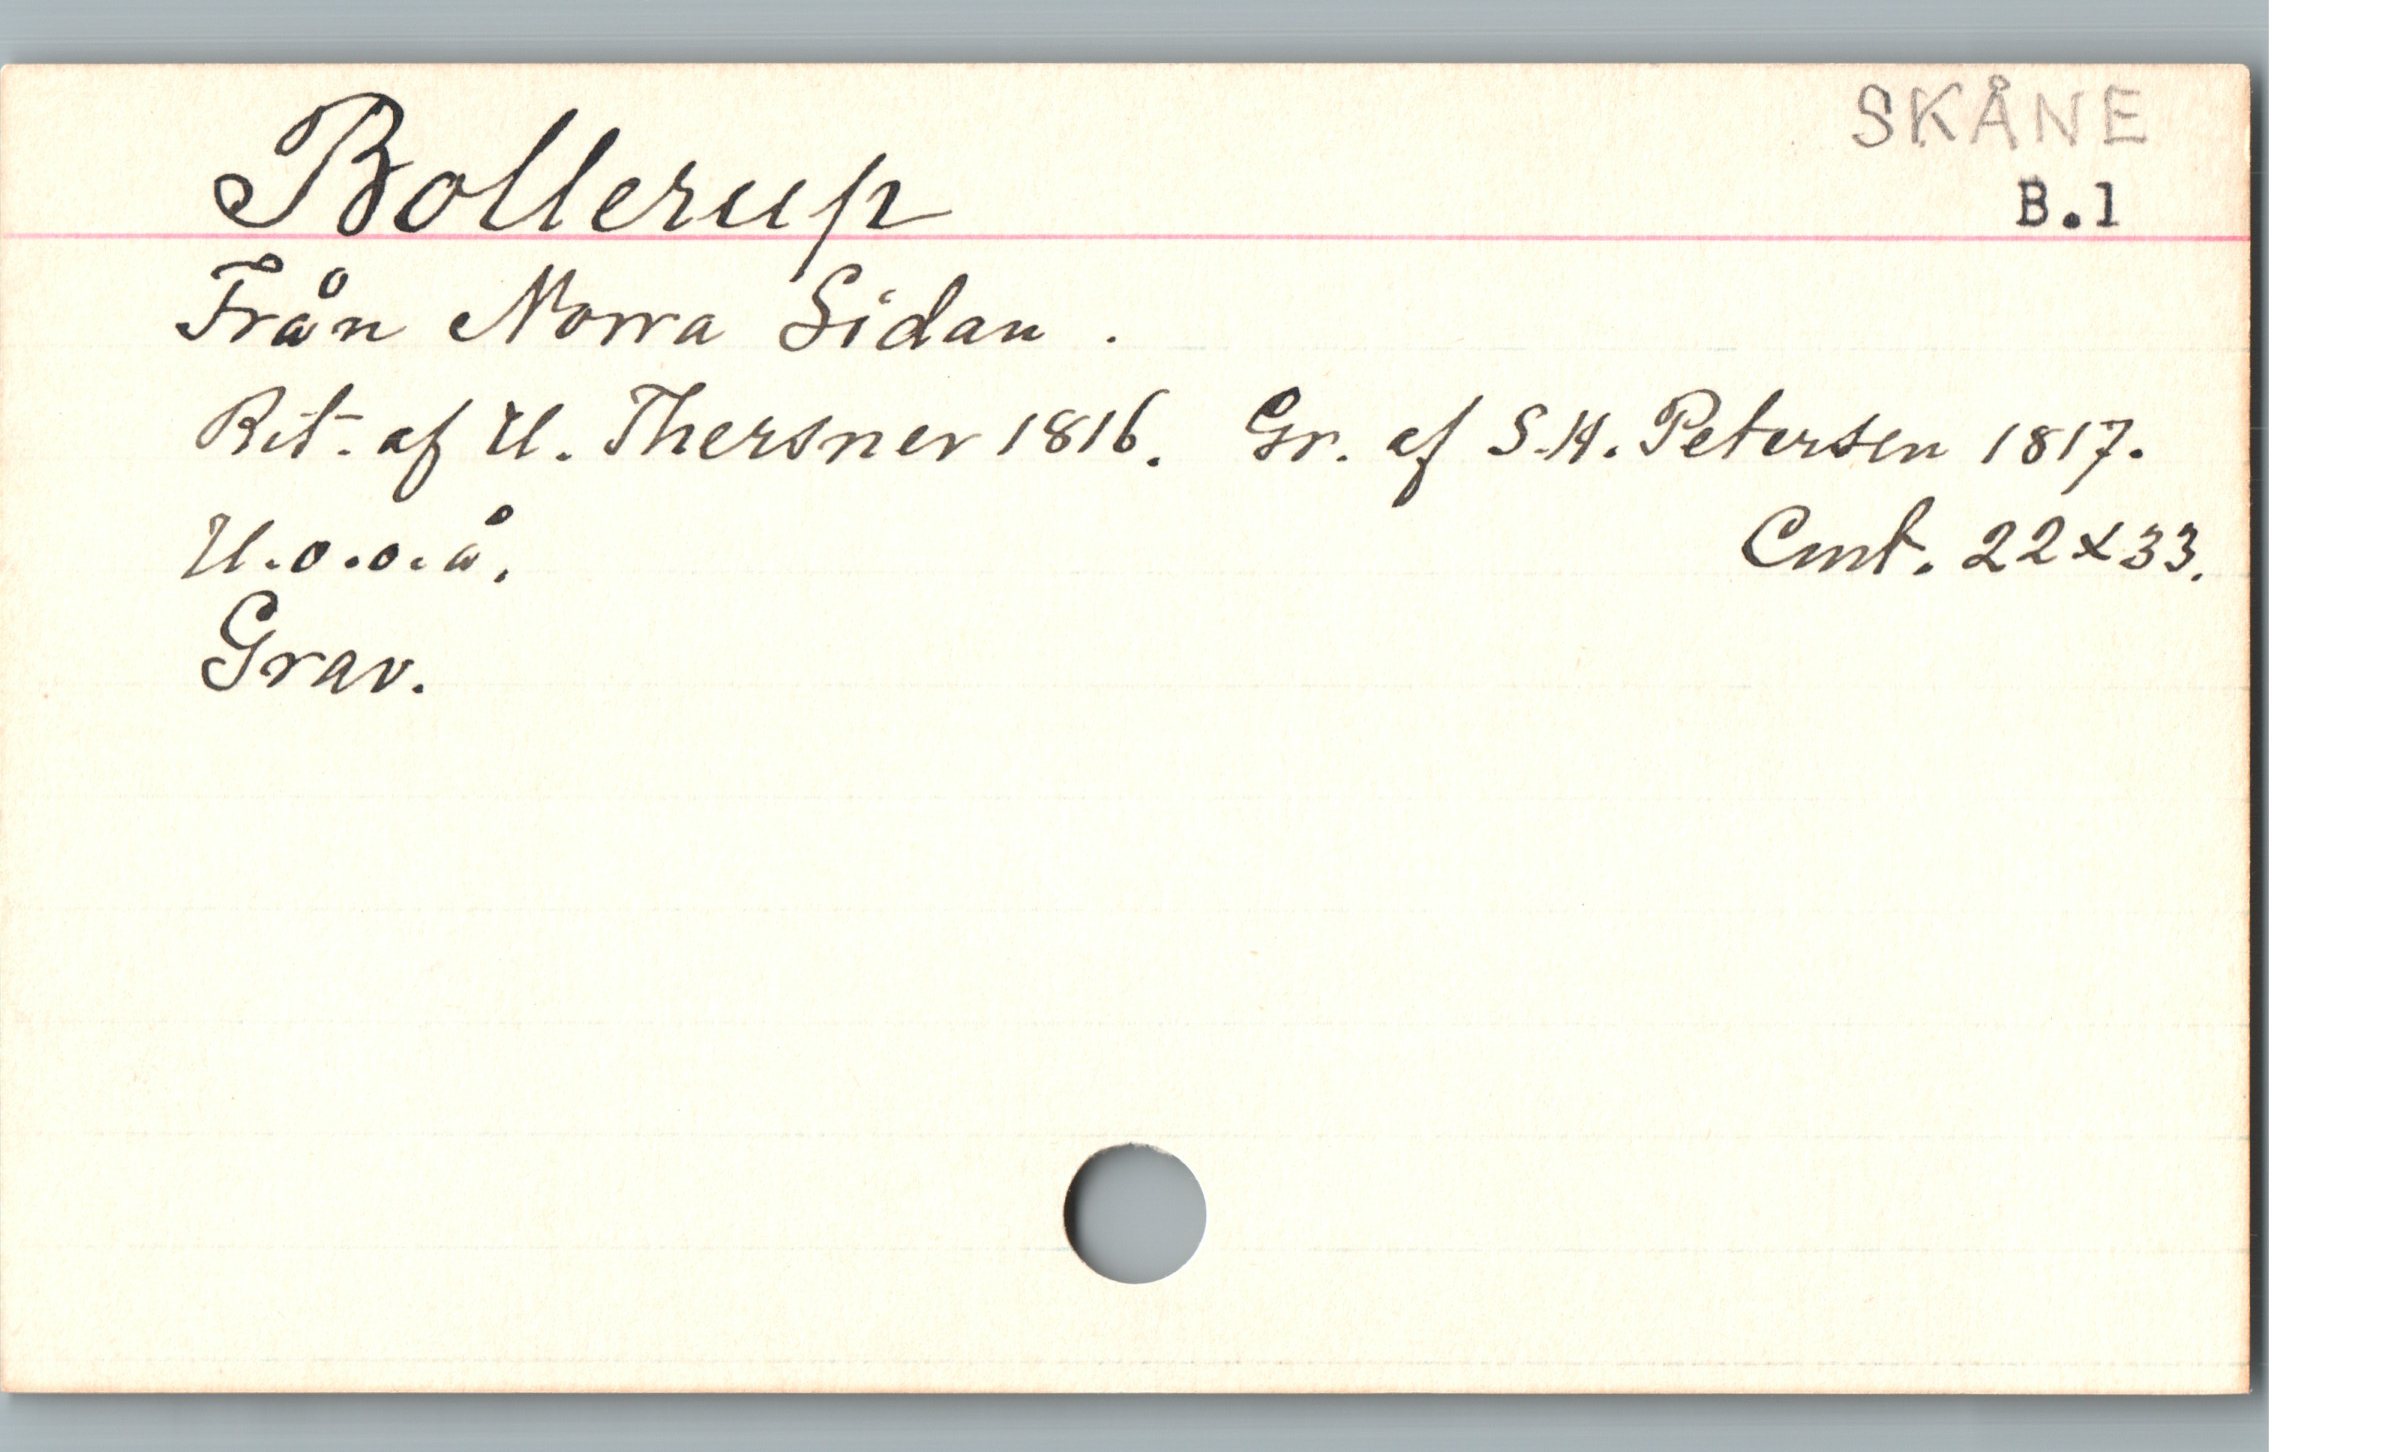 SKÅNE
Bollerup B.1
Från Norra Sidan.
Rit. af U. Thersner 1816. Gr. af S.H. Petersen 1817.
U.o.o.å. Cmt. 22x33.
Grav.